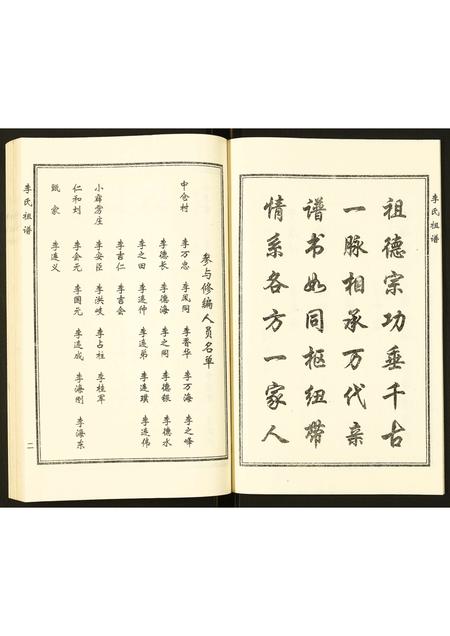 李氏祖谱
祖德宗功垂千古
一脉相承万代亲
谱书如同枢纽带
情系各方一家人
参与修编人员名单
中仓村 李万忠 李凤阁 李晋华 李万海 李之峰
李德长 李德海 李之阁 李德银 李德水
李之田 李连仲 李连弟 李连璞 李连伟
李吉仁 李吉会
小霹雳庄 李安臣 李洪岐 李占柱 李桂军
仁和刘 李会元 李国元 李连成 李海刚 李海东
甄家 李连义
李氏祖谱
二